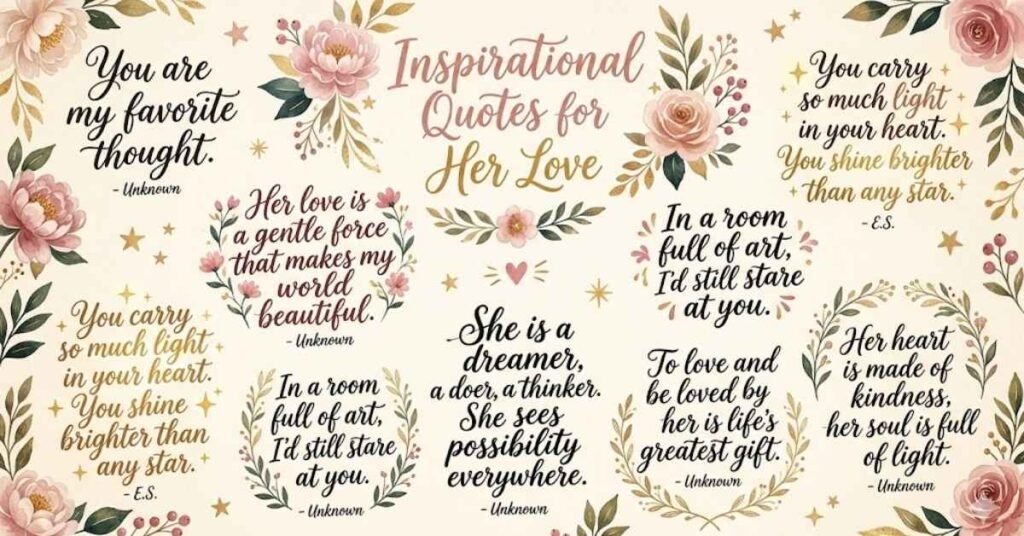 Inspirational
Quotes for
Her Love
You are
my favorite
thought.
- Unknown
Her love is
a gentle force
that makes my
world
beautiful.
- Unknown
You carry
so much light
in your heart.
You shine brighter
than any star.
- E.S.
In a room
full of art,
I'd still stare
at you.
You carry
so much light
in your heart.
You shine
brighter than
any star.
- E.S.
In a room
full of art,
I'd still stare
at you.
- Unknown
She is a
dreamer,
a doer, a thinker.
She sees
possibility
everywhere.
- Unknown
To love and
be loved by
her is life's
greatest gift.
- Unknown
Her heart
is made of
kindness,
her soul is full
of light.
- Unknown